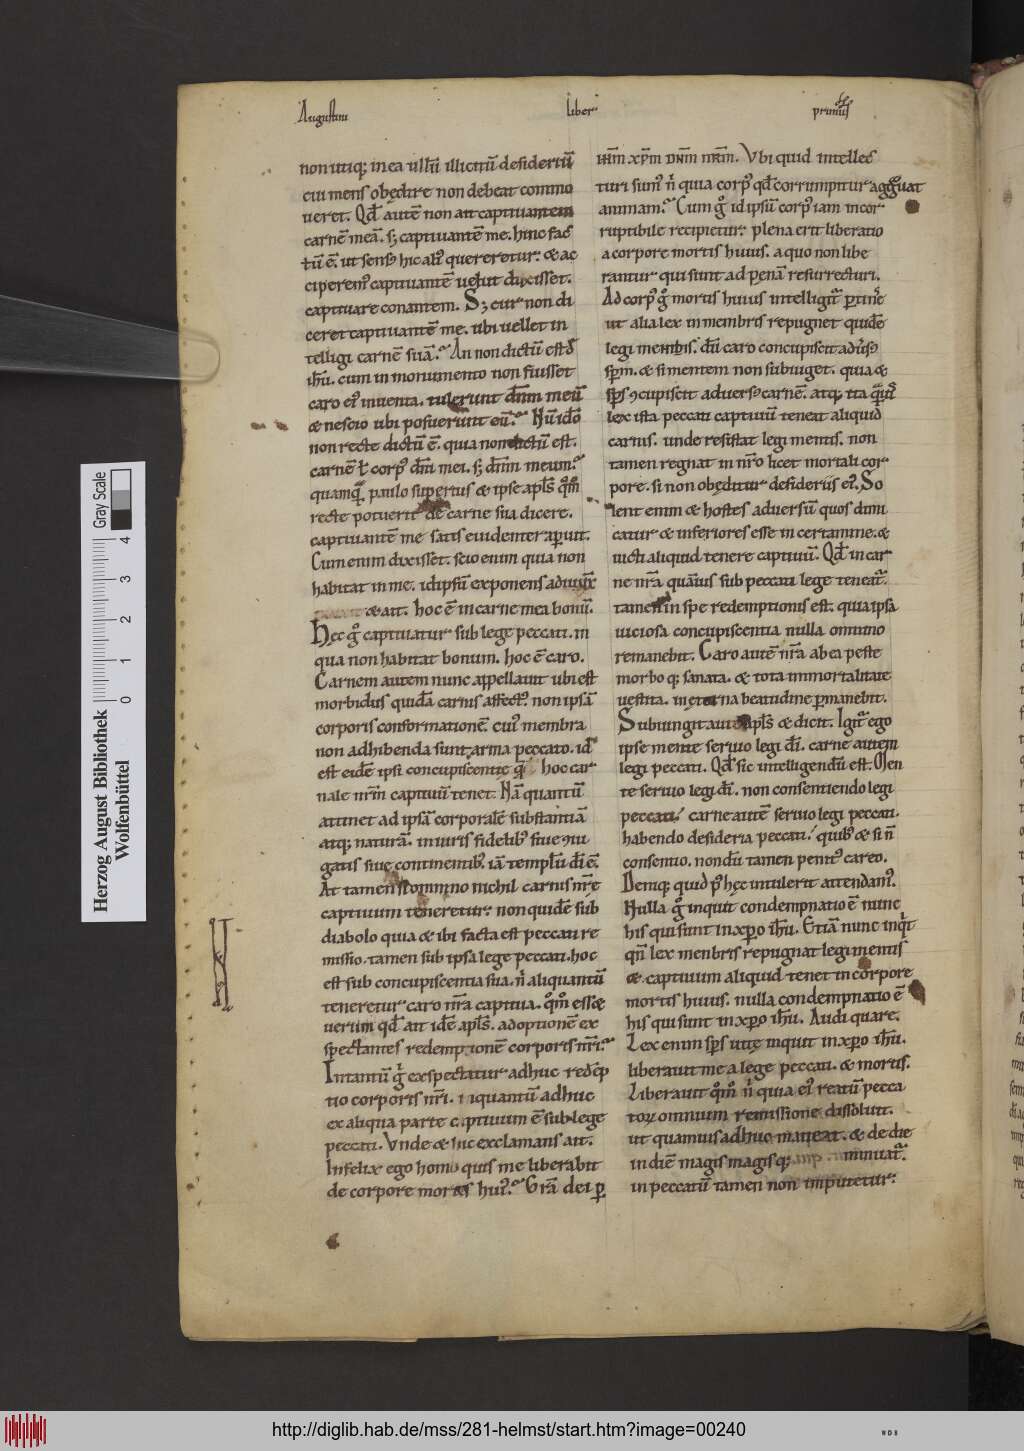 Augustini
liber
primus
non utiq; in ea ullū illicitū desideriū
cui mens obędire non debeat commo
ueret. Qđ autē non ait captiuantem
carnē meā. s; captiuantē me. hinc fac
tū ē. ut sensꝰ hic aliꝰ quereretur. & ac
ciperemꝰ captiuantē uelut dixisset.
captiuare conantem. S; cur non di
ceret captiuantē me. ubi uellet in
telligi carnē suā? An non dictū est đ
ihū. cum in monumento non fuisset
caro eiꝰ inuenta. tulerunt dn̄m meū
& nescio ubi posuerunt eū? Nū idō
non recte dictū ē. quia non dictū est.
carnē ł corpꝰ dn̄i mei. s; dn̄m meum?
quamq̄. paulo superius & ipse apl̄s qͦm
recte potuerit de carne sua dicere.
captiuantē me satis euidenter aꝑuit.
Cum enim dixisset. scio enim quia non
habitat in me. id ipsū exponens adiunx
& ait. hoc ē in carne mea bonū.
Hęc gͦ captiuatur sub lege peccati. in
qua non habitat bonum. hoc ē caro.
Carnem autem nunc appellauit ubi est
morbidus quidā carnis affectꝰ. non ipsā
corporis conformationē. cuiꝰ membra
non adhibenda sunt arma peccato. id
est eidē ipsi concupiscentię hoc car
nale nr̄m captiuū tenet. Nā quantū
attinet ad ipsā corporalē substantiā
atq; naturā. in uiris fidelibꝰ siue ꝯiu
gatis siue continentibꝰ. iā templū dī ē.
At tamen si omnino nichil carnis nr̄e
captiuum teneretur. non quidē sub
diabolo quia & ibi facta est peccati re
missio. tamen sub ipsa lege peccati. hoc
est sub concupiscentia sua. n̄ aliquantū
teneretur caro nr̄a captiua. qͦmͦ esset
uerum qđ ait idē apl̄s. adoptionē ex
spectantes redemptionē corporis nr̄i?
Intantū gͥ exspectatur adhuc redēp
tio corporis nr̄i. inquantū adhuc
ex aliqua parte captiuum ē sub lege
peccati. Vnde & huc exclamans ait.
Infelix ego homo quis me liberabit
de corpore mortis huiꝰ? Gr̄a dei ꝑ
ihm̄ xpm̄ dnm̄ nr̄m. Vbi quid intellec
turi sumꝰ n̄ quia corpꝰ qđ corrumpitur aggͣuat
animam? Cum gͦ id ipsū corpꝰ iam incor
ruptibile recipietur. plena erit liberatio
a corpore mortis huius. a quo non libe
rantur qui sunt ad penā resurrecturi.
Ad corpꝰ gͦ mortis huius intelligit̄ ꝑtinē
ut alia lex in membris repugnet quidē
legi mentis. dū caro concupiscit aduersꝰ
sp̄m. & si mentem non subiuget. quia &
sp̄s ꝯcupiscit aduersꝰ carnē. atq; ita qͣuis
lex ista peccati captiuū teneat aliquid
carnis. unde resistat legi mentis. non
tamen regnat in nr̄o licet mortali cor
pore. si non obęditur desideriis eiꝰ. So
lent enim & hostes aduersū quos dimi
catur & inferiores esse in certamine. &
uicti aliquid tenere captiuū. Qđ in car
ne nr̄a quāuis sub peccati lege teneat̄.
tamen in spe redemptionis est. quia ipsa
uiciosa concupiscentia nulla omnino
remanebit. Caro autē nr̄a ab ea peste
morbo q; sanata. & tota immortalitate
uestita. in ęterna beatitudine ꝑmanebit.
Subiungit aute apl̄s & dicit. Igit̄ ego
ipse mente seruio legi dī. carne autem
legi peccati. Qđ sic intelligendū est. Men
te seruio legi dī. non consentiendo legi
peccati. carne autē seruio legi peccati.
habendo desideria peccati. quibꝰ & si n̄
consentio. nondū tamen penitꝰ careo.
Deniq; quid pꝰ hęc intulerit attendamꝰ.
Nulla gͦ inquit condempnatio ē nunc
his qui sunt in xpo ihū. Etiā nunc inqͥt
qn̄ lex menbris repugnat legi mentis
& captiuum aliquid tenet in corpore
mortis huius. nulla condempnatio ē
his qui sunt in xpo ihū. Audi quare.
Lex enim sp̄s uitę inquit in xpo ihū.
liberauit me a lege peccati. & mortis.
Liberauit qͦmͦ n̄ quia eiꝰ reatū pecca
toꝝ omnium remissione dissoluit.
ut quamuis adhuc maneat. & de die
in diē magis magisq; minuat̄.
in peccatū tamen non imputetur.
Herzog August Bibliothek
Wolfenbüttel
0 1 2 3 4
Gray Scale
http://diglib.hab.de/mss/281-helmst/start.htm?image=00240